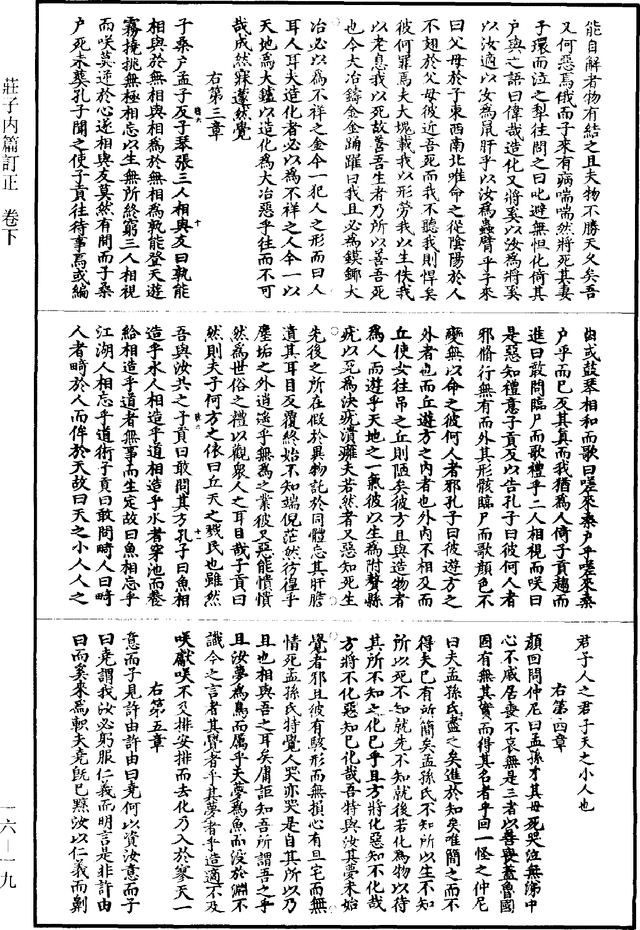 能自解者物有結之且夫物不勝天久矣吾
又何惡焉俄而子來有病喘喘然將死其妻
子環而泣之犁往問之曰叱避無怛化倚其
户與之語曰偉哉造化又將奚以汝為將奚
以汝適以汝為鼠肝乎以汝為蟲臂乎子來
曰父母於子東西南北唯命之從陰陽於人
不翅於父母彼近吾死而我不聽我則悍矣
彼何罪焉夫大塊載我以形勞我以生佚我
以老息我以死故善吾生者乃所以善吾死
也今大冶鑄金金踊躍曰我且必為鏌鋣大
冶必以為不祥之金今一犯人之形而曰人
耳人耳夫造化者必以為不祥之人今一以
天地為大鑪以造化為大冶惡乎往而不可
哉成然寐蘧然覺
右第三章
子桑户孟子反子琴張三人相與友曰孰能
相與於無相與相為於無相為孰能登天遊
霧撓挑無極相忘以生無所終窮三人相視
而笑莫逆於心遂相與友莫然有間而子桑
户死未葬孔子聞之使子貢往待事焉或編
曲或鼓琴相和而歌曰嗟來桑户乎嗟來桑
户乎而已反其真而我猶為人猗子貢趨而
進曰敢問臨尸而歌禮乎二人相視而笑曰
是惡知禮意子貢反以告孔子曰彼何人者
邪脩行無有而外其形骸臨尸而歌顏色不
變無以命之彼何人者邪孔子曰彼遊方之
外者也而丘遊方之内者也外内不相及而
丘使女往吊之丘則陋矣彼方且與造物者
為人而遊乎天地之一氣彼以生為附贅縣
疣以死為決疣潰癰夫若然者又惡知死生
先後之所在假於異物託於同體忘其肝膽
遺其耳目反覆終始不知端倪茫然彷徨乎
塵垢之外逍遥乎無為之業彼又惡能憒憒
然為世俗之禮以觀衆人之耳目哉子貢曰
然則夫子何方之依曰丘天之戮民也雖然
吾與汝共之子貢曰敢問其方孔子曰魚相
造乎水人相造乎道相造乎水者穿池而養
給相造乎道者無事而生定故曰魚相忘乎
江湖人相忘乎道術子貢曰敢問畸人曰畸
人者畸於人而侔於天故曰天之小人人之
君子人之君子天之小人也
右第四章
顏回問仲尼曰孟孫才其母死哭泣無涕中
心不慼居喪不哀無是三者以善喪蓋魯國
固有無其實而得其名者乎回一怪之仲尼
曰夫孟孫氏盡之矣進於知矣唯簡之而不
得夫已有所簡矣孟孫氏不知所以生不知
所以死不知就先不知就後若化為物以待
其所不知之化已乎且方將化惡知不化哉
方將不化惡知已化哉吾特與汝其夢未始
覺者邪且彼有駭形而無損心有旦宅而無
情死孟孫氏特覺人哭亦哭是自其所以乃
且也相與吾之耳矣庸詎知吾所謂吾之乎
且汝夢為鳥而厲乎天夢為魚而沒於淵不
識今之言者其覺者乎其夢者乎造適不及
笑獻笑不及排安排而去化乃入於寥天一
右第五章
意而子見許由許由曰堯何以資汝意而子
曰堯謂我汝必躬服仁義而明言是非許由
曰而奚來為軹夫堯既已黥汝以仁義而劓
莊子内篇訂正 卷下
一六—一九